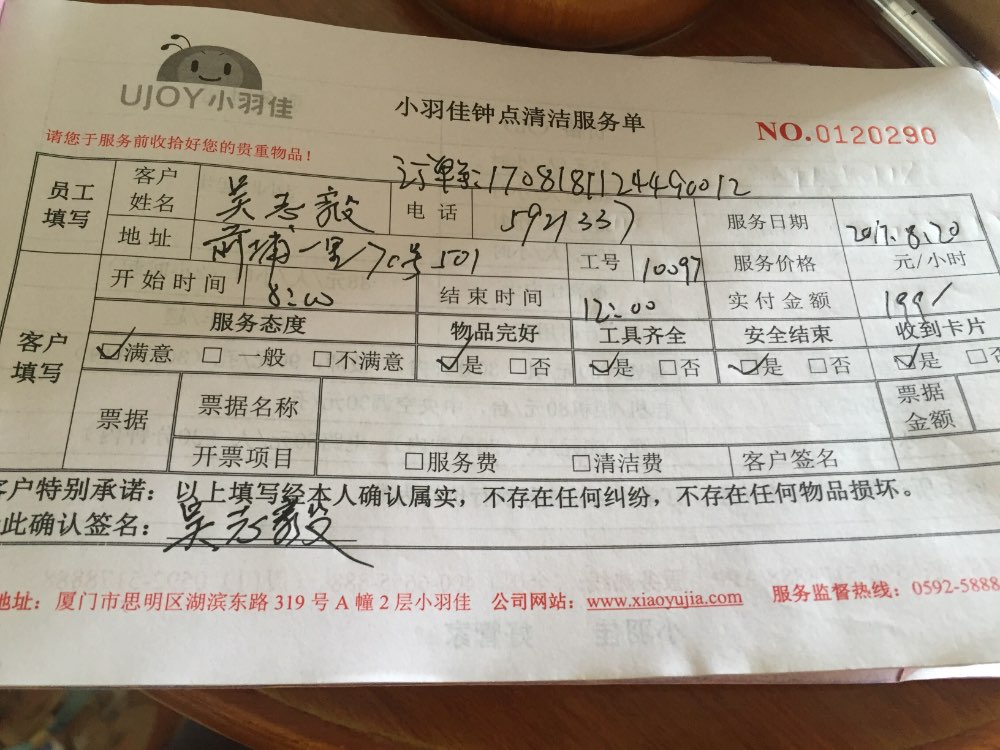 UJOY小羽佳
小羽佳钟点清洁服务单
NO.0120290
请您于服务前收拾好您的贵重物品！
订单号:1708181124490012
员工填写 客户姓名 吴志毅 电话 5921337 服务日期 2017.8.20
地址 前埔一里70号501 工号 10097 服务价格 元/小时
客户填写 开始时间 8:00 结束时间 12:00 实付金额 199/
服务态度 物品完好 工具齐全 安全结束 收到卡片
☑满意 □一般 □不满意 ☑是 □否 ☑是 □否 ☑是 □否 ☑是 □否
票据 票据名称 票据金额
开票项目 □服务费 □清洁费 客户签名
客户特别承诺：以上填写经本人确认属实，不存在任何纠纷，不存在任何物品损坏。
此确认签名：吴志毅
地址：厦门市思明区湖滨东路319号A幢2层小羽佳 公司网站：www.xiaoyujia.com 服务监督热线：0592-5888